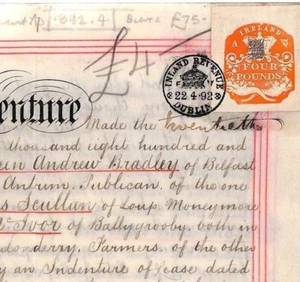 £4
IRELAND
FOUR
POUNDS
INLAND REVENUE
22·4·92
DUBLIN
enture
Made the twentieth
thousand eight hundred and
Andrew Bradley of Belfast
Antrim, Publican, of the one
Scullan of Loup Moneymore
Ivor of Ballygrooby, both in
donderry, Farmers, of the other
an Indenture of Lease dated